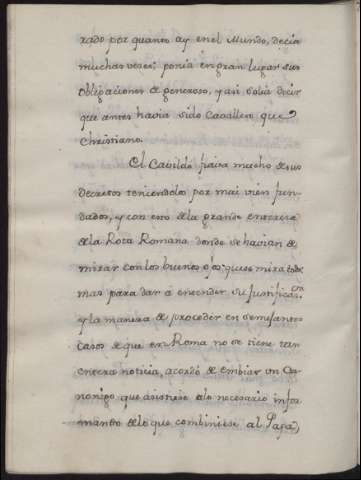 rado por quanto ay en el Mundo, decia
muchas veces: ponia en gran lugar sus
obligaciones de generoso, y asi solia decir
que antes havia sido Cavallero que
Christiano.
El Cavildo fiava mucho de sus
Decretos teniendolos por mui vien fun-
dados, y con esto de la grande entereza
de la Rota Romana donde se havian de
mirar con los buenos ojos que se mira todo
mas para dar à entender su justificaon
y la manera de proceder en semejantes
casos de que en Roma no se tiene tan
entera noticia, acordó de embiar un Ca-
nonigo que asistiese a lo necesario infor-
mando de lo que combiniese al Papa,